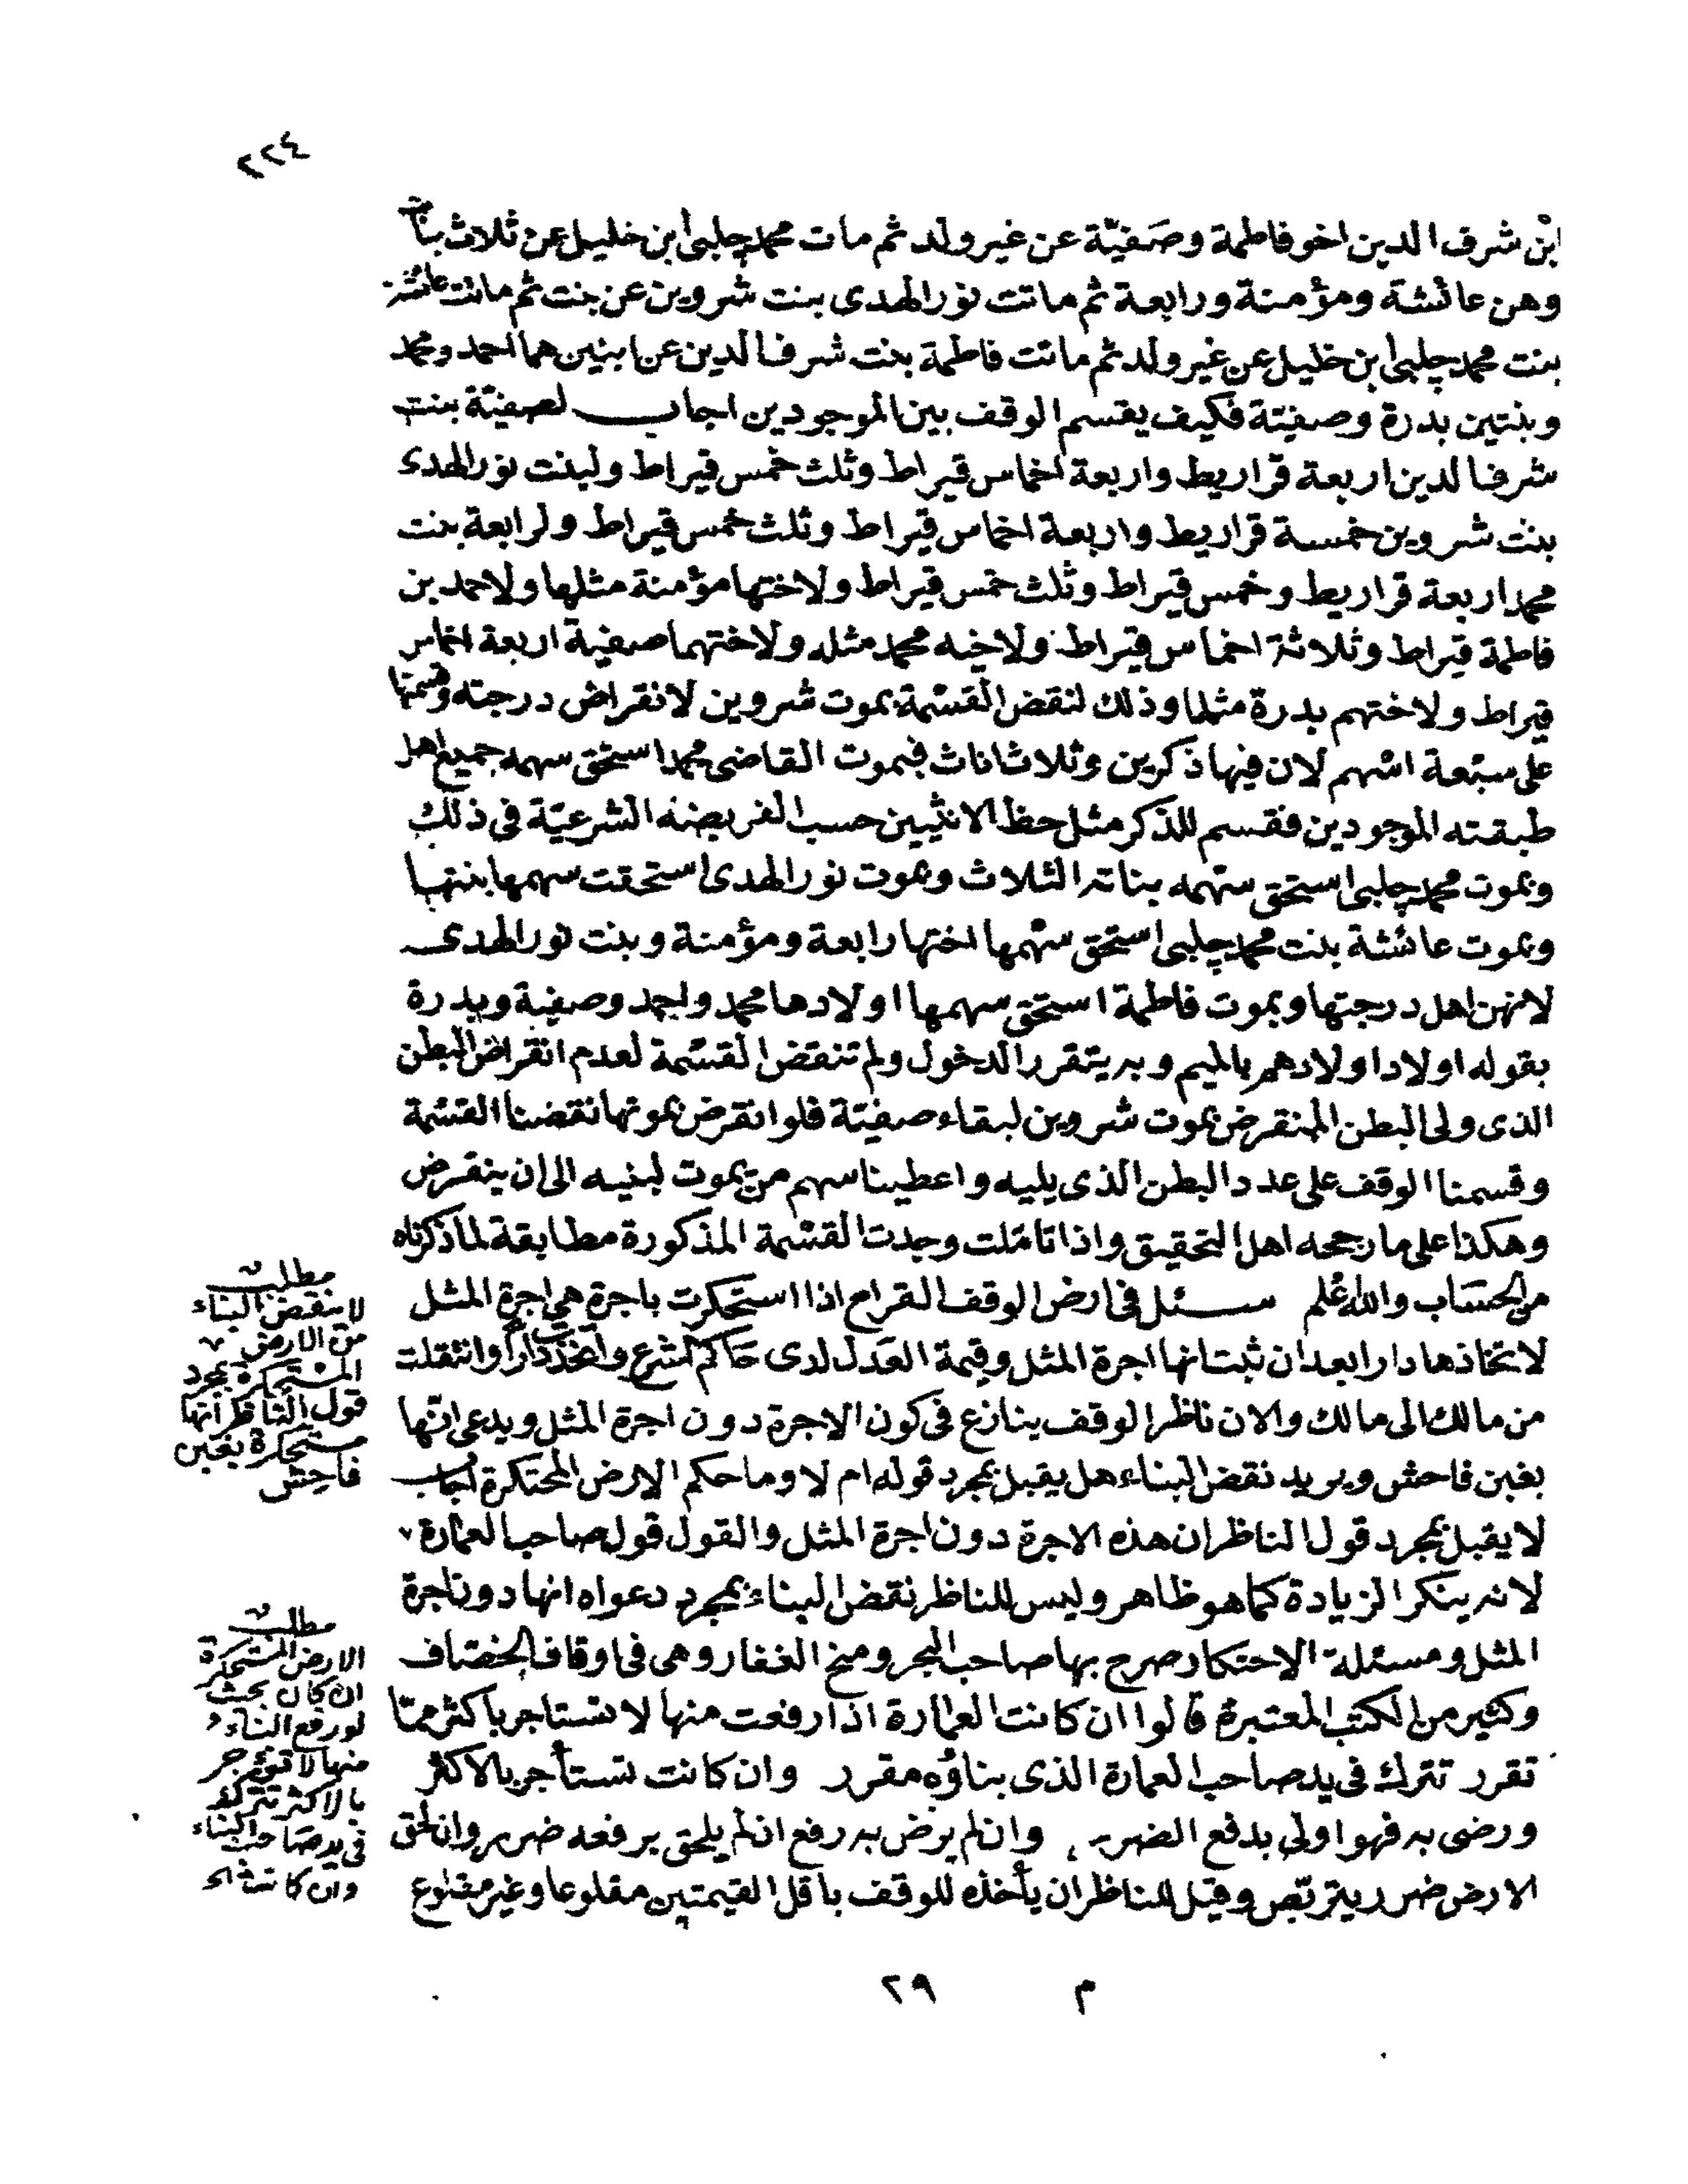 ٢٢٤
ابن شرف الدين اخو فاطمة وصفيّة عن غير ولد ثم مات محمد چلبى ابن خليل عن ثلاث بنات
وهن عائشة ومؤمنة ورابعة ثم ماتت نور الهدى بنت شروين عن بنت ثم ماتت عائشة
بنت محمد چلبى ابن خليل عن غير ولد ثم ماتت فاطمة بنت شرف الدين عن ابنين هما احمد ومحمد
وبنتين بدرة وصفيّة فكيف يقسم الوقف بين الموجودين اجاب لصفيّة بنت
شرف الدين اربعة قراريط واربعة اخماس قيراط وثلث خمس قيراط ولبنت نور الهدى
بنت شروين خمسة قراريط واربعة اخماس قيراط وثلث خمس قيراط ولرابعة بنت
محمد اربعة قراريط وخمس قيراط وثلث خمس قيراط ولاختها مؤمنة مثلها ولاحمد بن
فاطمة قيراط وثلاثة اخماس قيراط ولاخيه محمد مثله ولاختهما صفية اربعة اخماس
قيراط ولاختهم بدرة مثلها وذلك لنقض القسمة بموت شروين لانقراض درجته وقسمتها
على سبعة اسهم لان فيها ذكرين وثلاث اناث فبموت القاضى محمد استحق سهمه جميع اهل
طبقته الموجودين فقسم للذكر مثل حظ الانثيين حسب الفريضة الشرعيّة فى ذلك
وبموت محمد چلبى استحق سهمه بناته الثلاث وبموت نور الهدى استحقت سهمها بنتها
وبموت عائشة بنت محمد چلبى استحق سهمها اختها رابعة ومؤمنة وبنت نور الهدى
لانهن اهل درجتها وبموت فاطمة استحق سهمها اولادها محمد واحمد وصفية وبدرة
بقوله اولاد اولادهم بالميم وبه يتقرر الدخول ولم تنقض القسمة لعدم انقراض البطن
الذى ولى البطن المنقرض بموت شروين لبقاء صفيّة فلو انقرض بموتها نقضنا القسمة
وقسمنا الوقف على عدد البطن الذى يليه واعطينا سهم من يموت لبنيه الى ان ينقرض
وهكذا على ما رجحه اهل التحقيق واذا تاملت وجدت القسمة المذكورة مطابقة لما ذكرناه
من الحساب والله اعلم سئل فى ارض الوقف القراح اذا استحكرت باجرة هى اجرة المثل
لاتخاذها دارا بعد ان ثبت انها اجرة المثل وقيمة العدل لدى حاكم الشرع واتخذت دارا وانتقلت
من مالك الى مالك والان ناظر الوقف ينازع فى كون الاجرة دون اجرة المثل ويدعى انها
بغبن فاحش ويريد نقض البناء هل يقبل بمجرد قوله ام لا وما حكم الارض المحتكرة اجاب
لا يقبل بمجرد قول الناظر ان هذه الاجرة دون اجرة المثل والقول قول صاحب العمارة
لانه ينكر الزيادة كما هو ظاهر وليس للناظر نقض البناء بمجرد دعواه انها دون اجرة
المثل ومسئلة الاحتكار صرح بها صاحب البحر ومنح الغفار وهى فى اوقاف الخصاف
وكثير من الكتب المعتبرة قالوا ان كانت العمارة اذا رفعت منها لا تستاجر باكثر ممّا
تقرر تترك فى يد صاحب العمارة الذى بناؤه مقرر وان كانت تستأجر بالاكثر
ورضى به فهو اولى بدفع الضرر وان لم يرض به رفع ان لم يلحق برفعه ضرر وان لحق
الارض ضرر يتربّص وقيل للناظر ان يأخذه للوقف باقل القيمتين مقلوعا وغير مقلوع
مطلب
لا ينقض البناء
من الارض
المستحكرة بمجرد
قول الناظر انها
مستحكرة بغبن
فاحش
مطلب
الارض المستحكرة
ان كان بحيث
لو رفع البناء
منها لا تؤجر
بالاكثر تترك
فى يد صاحب البناء
وان كانت
م ٢٩